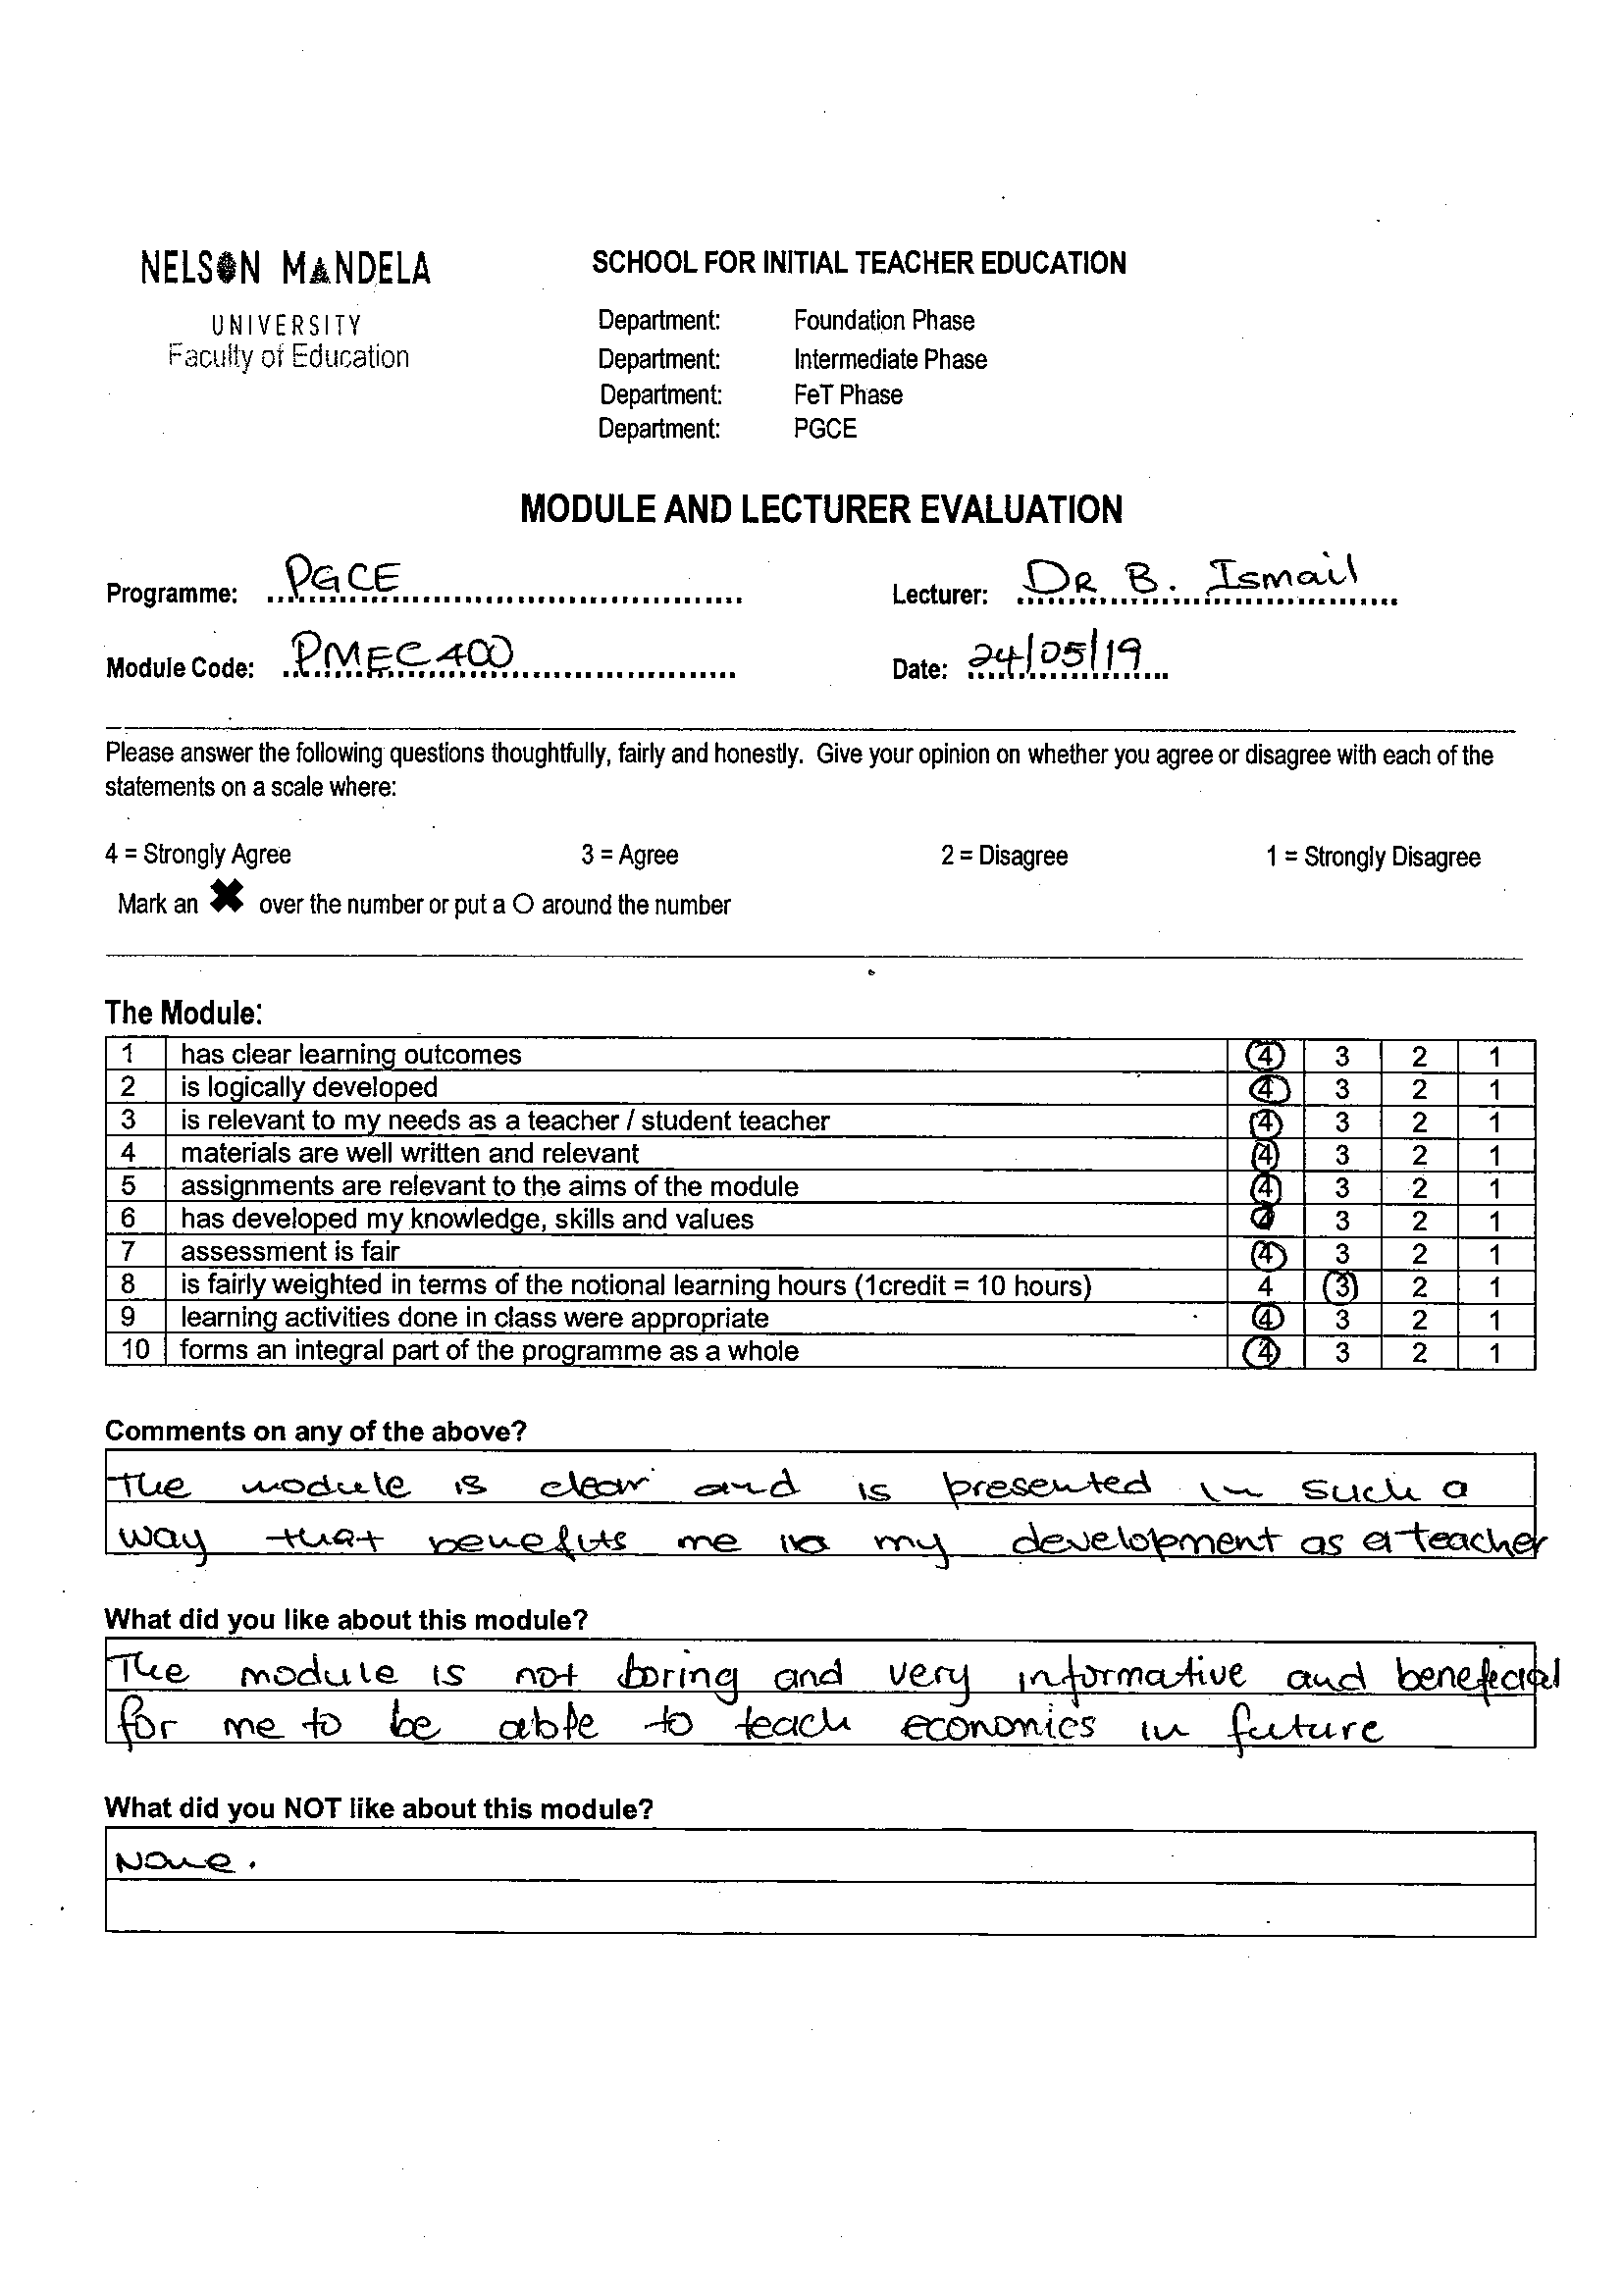 NELSON MANDELA
UNIVERSITY
Faculty of Education
SCHOOL FOR INITIAL TEACHER EDUCATION
Department: Foundation Phase
Department: Intermediate Phase
Department: FeT Phase
Department: PGCE
MODULE AND LECTURER EVALUATION
Programme: PGCE Lecturer: DR B. Ismail
Module Code: PMEC400 Date: 24/05/19
Please answer the following questions thoughtfully, fairly and honestly. Give your opinion on whether you agree or disagree with each of the
statements on a scale where:
4 = Strongly Agree 3 = Agree 2 = Disagree 1 = Strongly Disagree
Mark an ✖ over the number or put a O around the number
The Module:
1 has clear learning outcomes 4 3 2 1
2 is logically developed 4 3 2 1
3 is relevant to my needs as a teacher / student teacher 4 3 2 1
4 materials are well written and relevant 4 3 2 1
5 assignments are relevant to the aims of the module 4 3 2 1
6 has developed my knowledge, skills and values 4 3 2 1
7 assessment is fair 4 3 2 1
8 is fairly weighted in terms of the notional learning hours (1credit = 10 hours) 4 3 2 1
9 learning activities done in class were appropriate 4 3 2 1
10 forms an integral part of the programme as a whole 4 3 2 1
Comments on any of the above?
The module is clear and is presented in such a
way that benefits me in my development as a teacher
What did you like about this module?
The module is not boring and very informative and benefecial
for me to be able to teach economics in future
What did you NOT like about this module?
None.